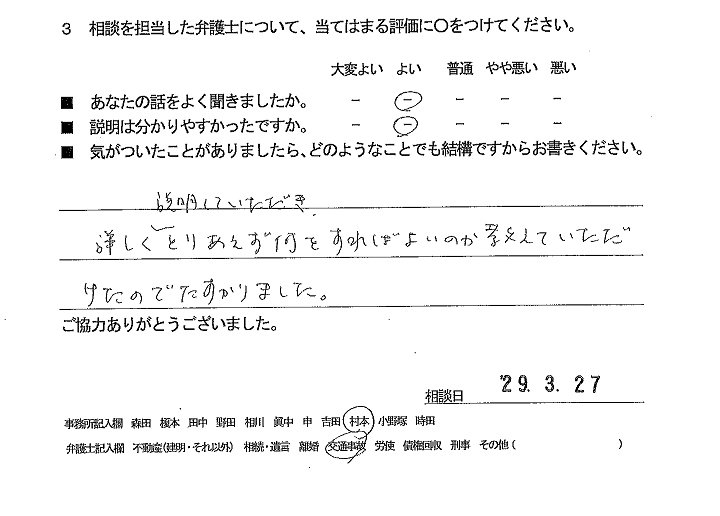 3 相談を担当した弁護士について、当てはまる評価に○をつけてください。
大変よい よい 普通 やや悪い 悪い
■ あなたの話をよく聞きましたか。 － － － － －
■ 説明は分かりやすかったですか。 － － － － －
■ 気がついたことがありましたら、どのようなことでも結構ですからお書きください。
説明していただき、
詳しくとりあえず何をすればよいのか教えていただ
けたのでたすかりました。
ご協力ありがとうございました。
相談日 '29. 3. 27
事務所記入欄 森田 榎本 田中 野田 相川 眞中 申 吉田 村本 小野塚 時田
弁護士記入欄 不動産(建明・それ以外) 相続・遺言 離婚 交通事故 労使 債権回収 刑事 その他( )